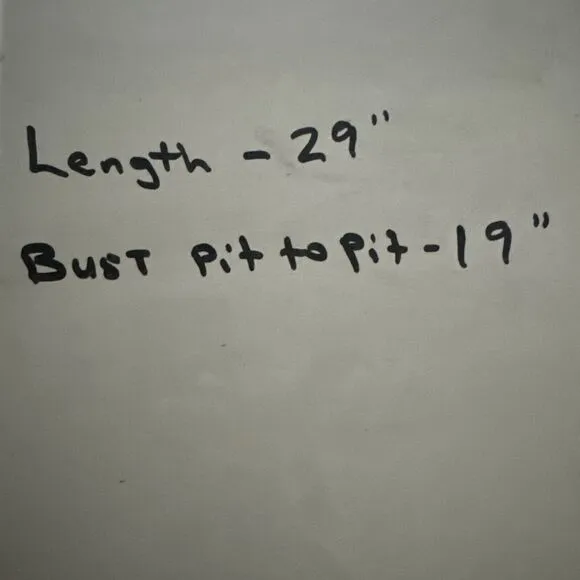 Length - 29"
BUST Pit to Pit - 19"